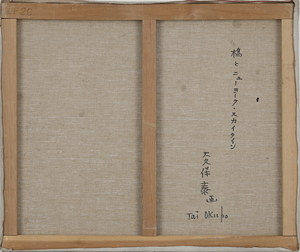 F20
橋とニューヨーク・スカイライン
大久保 泰画
Tai OKUbo